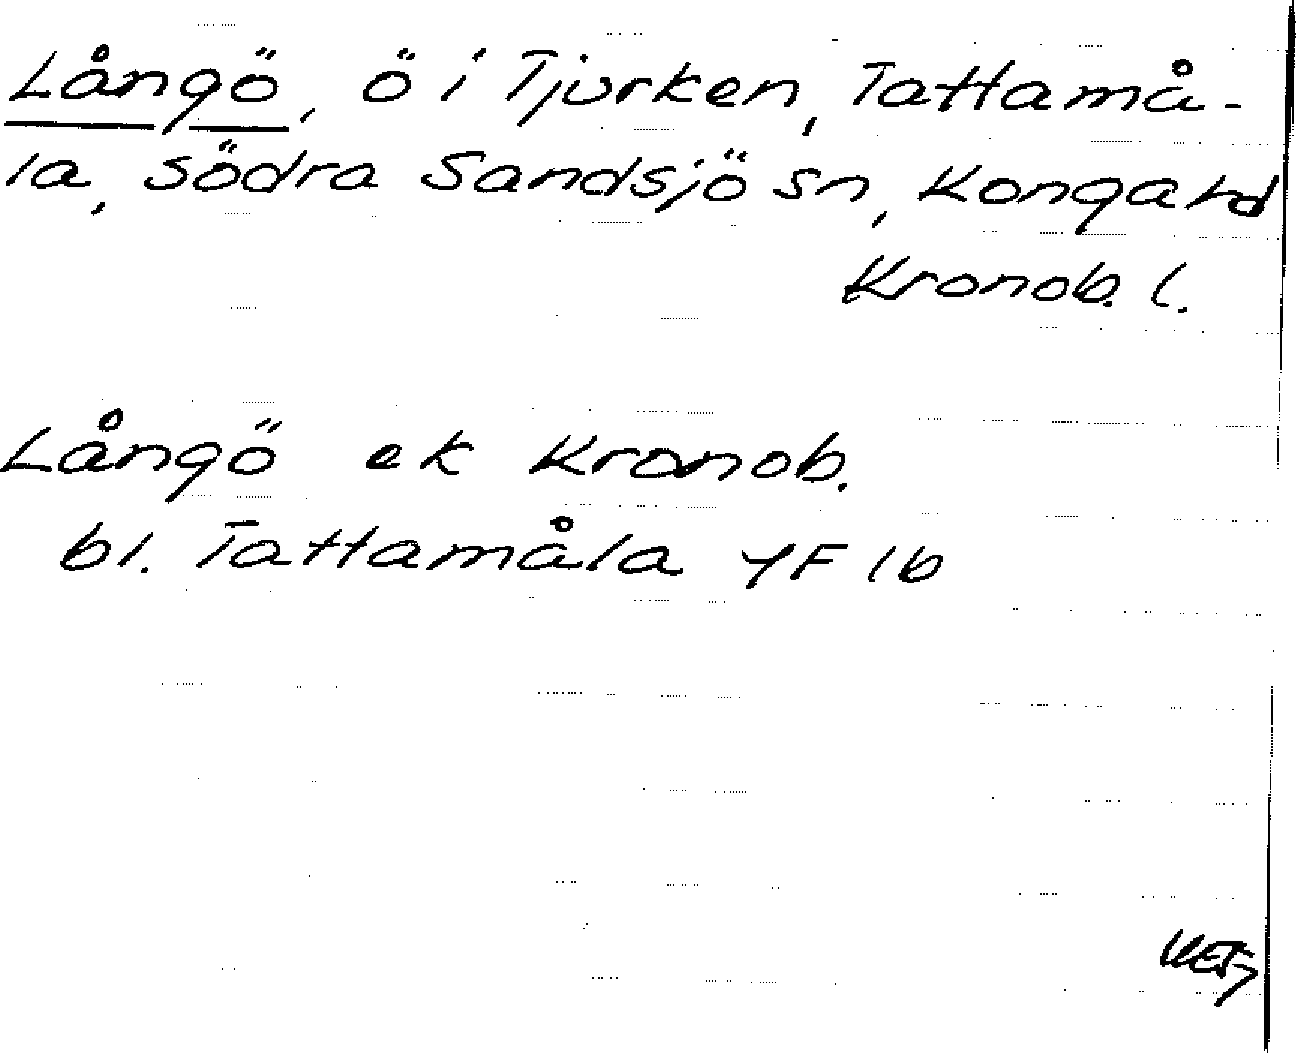 Långö, ö i Tjurken, Tattamå-
la, södra Sandsjö sn, Konga hd
Kronob. l.
Långö ek Kronob.
bl. Tattamåla YF 1b